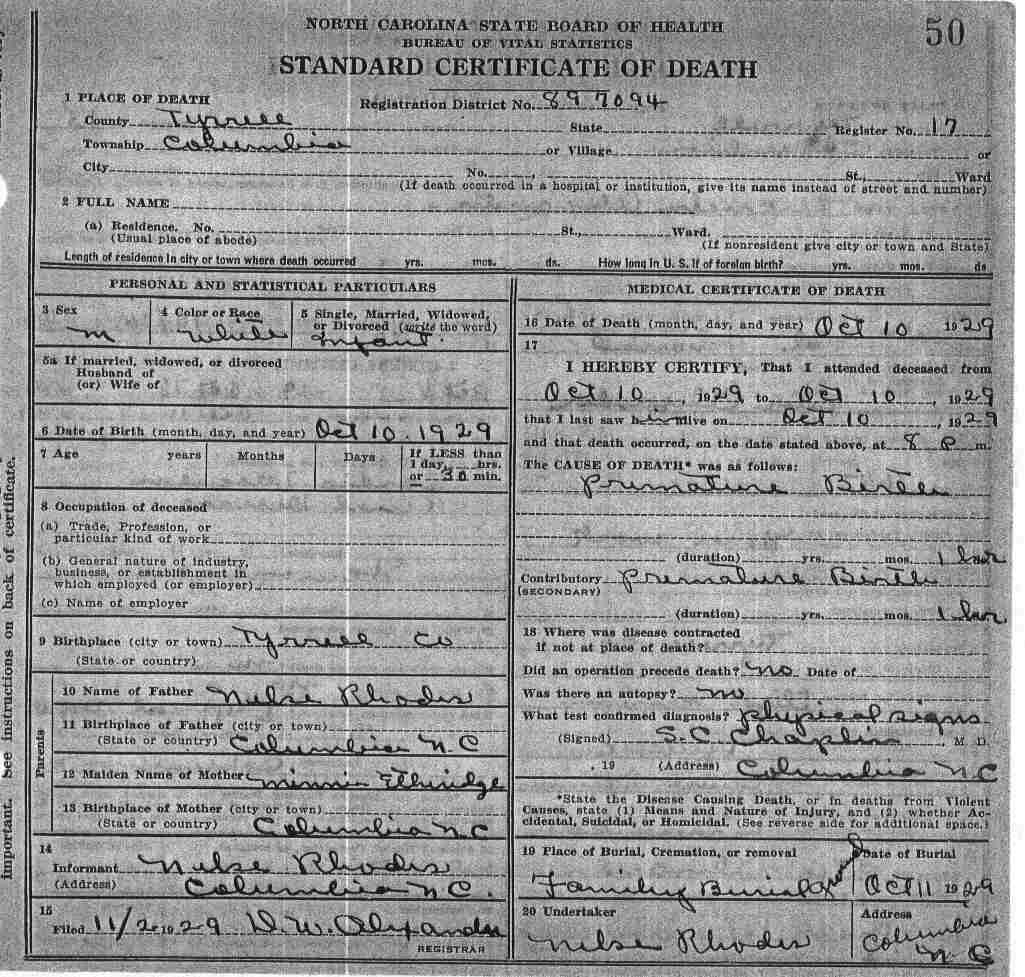 50
NORTH CAROLINA STATE BOARD OF HEALTH
BUREAU OF VITAL STATISTICS
STANDARD CERTIFICATE OF DEATH
1 PLACE OF DEATH Registration District No. 897094
County Tyrrell State Register No. 17
Township Columbia or Village or
City No. , St., Ward
(If death occurred in a hospital or institution, give its name instead of street and number)
2 FULL NAME
(a) Residence. No. St., Ward.
(Usual place of abode) (If nonresident give city or town and State)
Length of residence in city or town where death occurred yrs. mos. ds. How long in U. S. if of foreign birth? yrs. mos. ds
PERSONAL AND STATISTICAL PARTICULARS
3 Sex 4 Color or Race 5 Single, Married, Widowed,
or Divorced (write the word)
M White Infant.
5a If married, widowed, or divorced
Husband of
(or) Wife of
6 Date of Birth (month, day, and year) Oct 10. 1929
7 Age years Months Days If LESS than
1 day, hrs.
or 30 min.
8 Occupation of deceased
(a) Trade, Profession, or
particular kind of work
(b) General nature of industry,
business, or establishment in
which employed (or employer)
(c) Name of employer
9 Birthplace (city or town) Tyrrell Co
(State or country)
Parents
10 Name of Father Nelse Rhodes
11 Birthplace of Father (city or town)
(State or country) Columbia N.C
12 Maiden Name of Mother Minnie Etheridge
13 Birthplace of Mother (city or town)
(State or country) Columbia N.C
14
Informant Nelse Rhodes
(Address) Columbia N C.
15
Filed 11/2 1929 D.W. Alexander
REGISTRAR
MEDICAL CERTIFICATE OF DEATH
16 Date of Death (month, day, and year) Oct 10 1929
17
I HEREBY CERTIFY, That I attended deceased from
Oct 10, 1929 to Oct 10, 1929
that I last saw him alive on Oct 10, 1929
and that death occurred, on the date stated above, at 8 P m.
The CAUSE OF DEATH* was as follows:
Premature Birth
(duration) yrs. mos. 1 hr
Contributory Premature Birth
(SECONDARY)
(duration) yrs. mos. 1 hr
18 Where was disease contracted
if not at place of death?
Did an operation precede death? No Date of
Was there an autopsy? No
What test confirmed diagnosis? Physical signs
(Signed) S.C Chaplin, M. D.
, 19 (Address) Columbia N C
*State the Disease Causing Death, or in deaths from Violent
Causes, state (1) Means and Nature of Injury, and (2) whether Ac-
cidental, Suicidal, or Homicidal. (See reverse side for additional space.)
19 Place of Burial, Cremation, or removal Date of Burial
Family Burial Ground Oct 11 1929
20 Undertaker Address
Nelse Rhodes Columbia
N C
Important. See instructions on back of certificate.